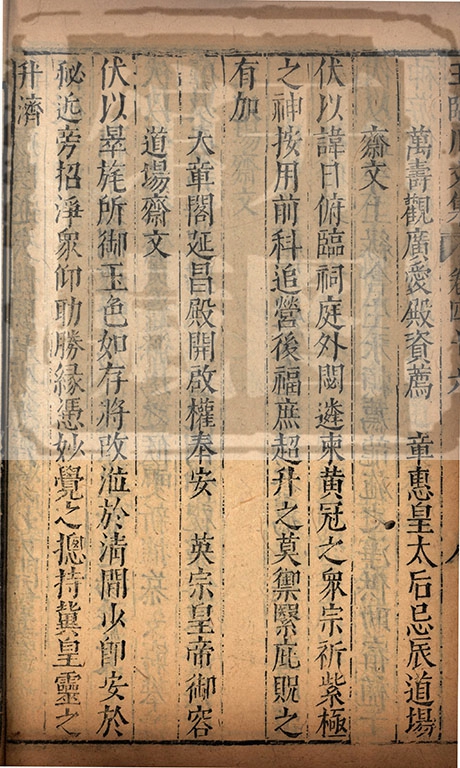 萬壽觀廣愛殿資薦　章惠皇太后忌辰道場
齋文
伏以諱日俯臨祠庭外閟遴柬黃冠之衆宗祈紫極
之神按用前科追營後福庶超升之莫禦緊庇貺之
有加
天章閣延昌殿開啟權奉安　英宗皇帝御容
道場齋文
伏以翠旄所御玉色如存將改涖於清閒少卽安於
秘近旁招淨衆仰助勝緣憑妙覺之摠持冀皇靈之
升濟